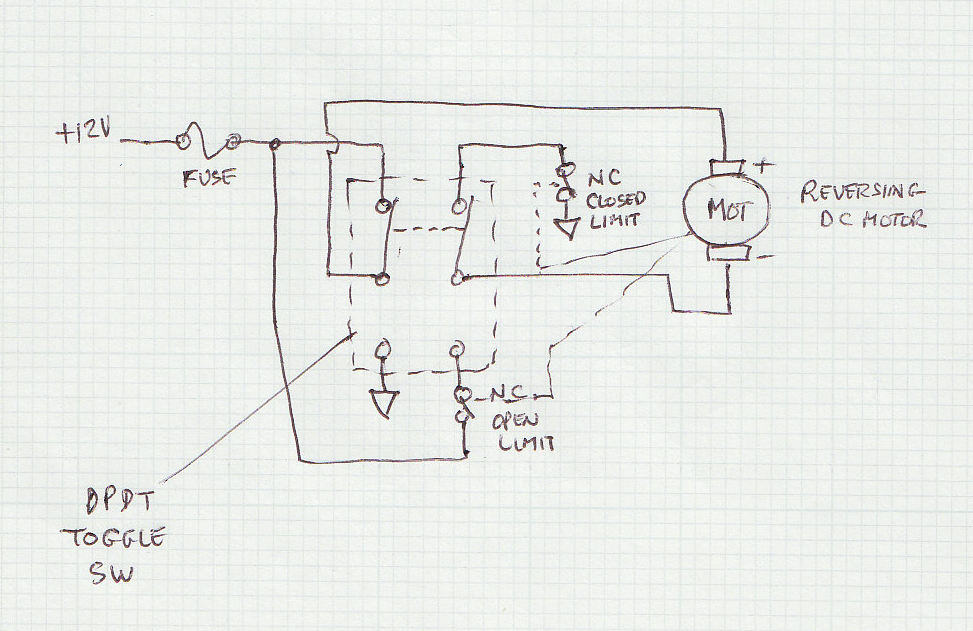 +12V
FUSE
NC
CLOSED
LIMIT
+
MOT
-
REVERSING
DC MOTOR
NC
OPEN
LIMIT
DPDT
TOGGLE
SW